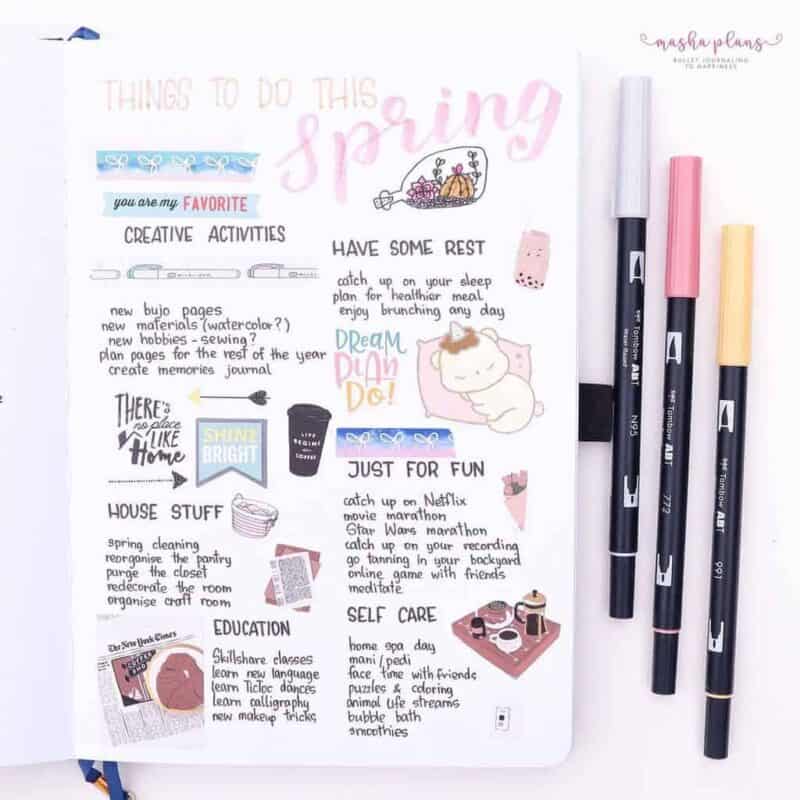 masha plans
BULLET JOURNALING
TO HAPPINESS
THINGS TO DO THIS
Spring
you are my FAVORITE
CREATIVE ACTIVITIES
new bujo pages
new materials (watercolor?)
new hobbies - sewing?
plan pages for the rest of the year
create memories journal
THERE'S
no place
LIKE
Home
SHINE
BRIGHT
LIVE
BEGINS
COFFEE
HOUSE STUFF
spring cleaning
reorganise the pantry
purge the closet
redecorate the room
organise craft room
The New York Times
EDUCATION
Skillshare classes
learn new language
learn TicToc dances
learn calligraphy
new makeup tricks
HAVE SOME REST
catch up on your sleep
plan for healthier meal
enjoy brunching any day
DREAM
PLAN
DO!
JUST FOR FUN
catch up on Netflix
movie marathon
Star Wars marathon
catch up on your recording
go tanning in your backyard
online game with friends
meditate
SELF CARE
home spa day
mani/pedi
face time with friends
puzzles & coloring
animal life streams
bubble bath
smoothies
Tombow ABT
N95
Tombow ABT
772
Tombow ABT
991